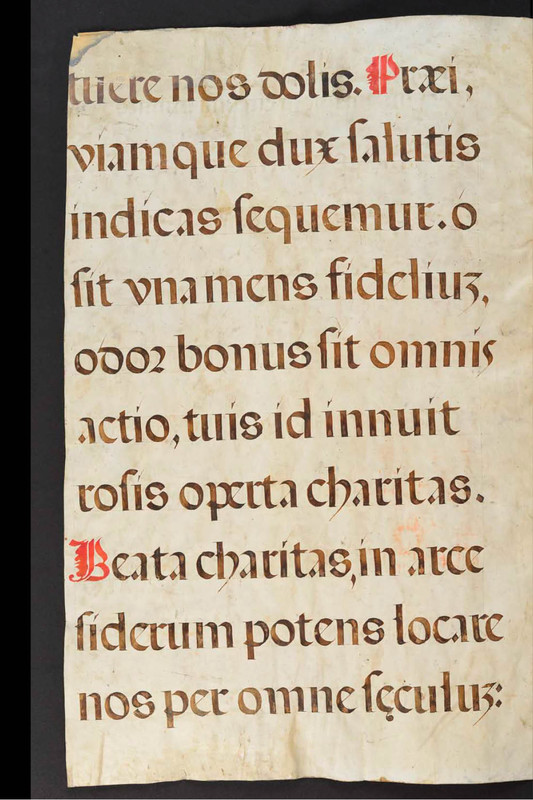 tuere nos dolis. Præi,
viamque dux ſalutis
indicas ſequemur. o
ſit vna mens fideliuʒ,
odoꝛ bonus ſit omnis
actio, tuis id innuit
roſis operta charitas.
Beata charitas, in arce
ſiderum potens locare
nos per omne ſęculuʒ: